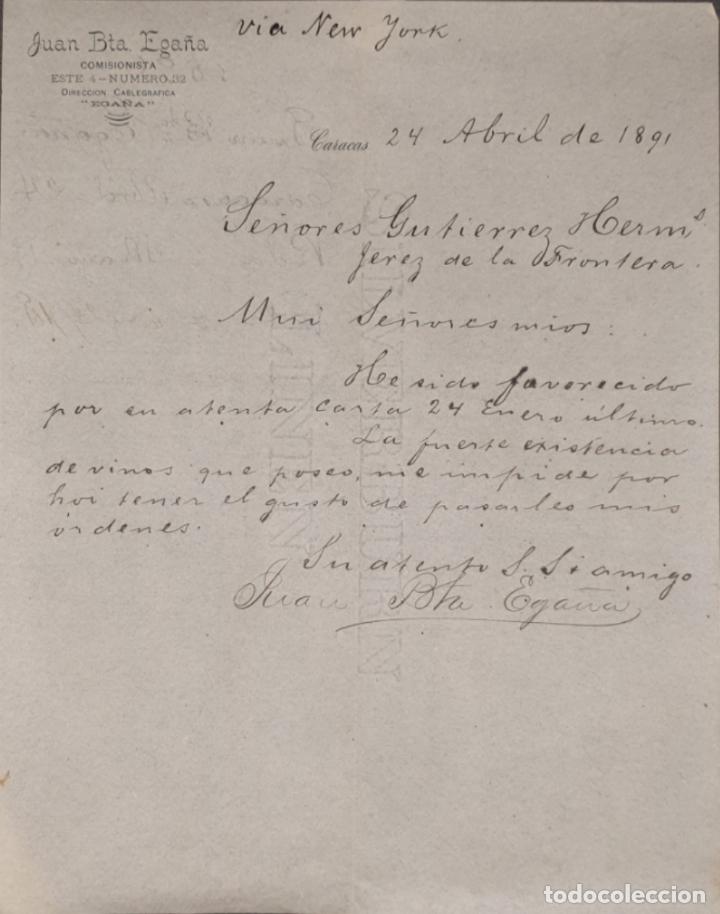 via New York.
Juan Bta. Egaña
COMISIONISTA
ESTE 4-NUMERO 32
DIRECCION CABLEGRAFICA
"EGAÑA"
Caracas 24 Abril de 1891
Señores Gutierrez Herms
Jerez de la Frontera.
Mui Señores mios:
He sido favorecido
por su atenta carta 24 Enero último.
La fuerte existencia
de vinos que poseo, me impide por
hoi tener el gusto de pasarles mis
órdenes.
Su atento S. S i amigo
Juan Bta Egaña
todocoleccion